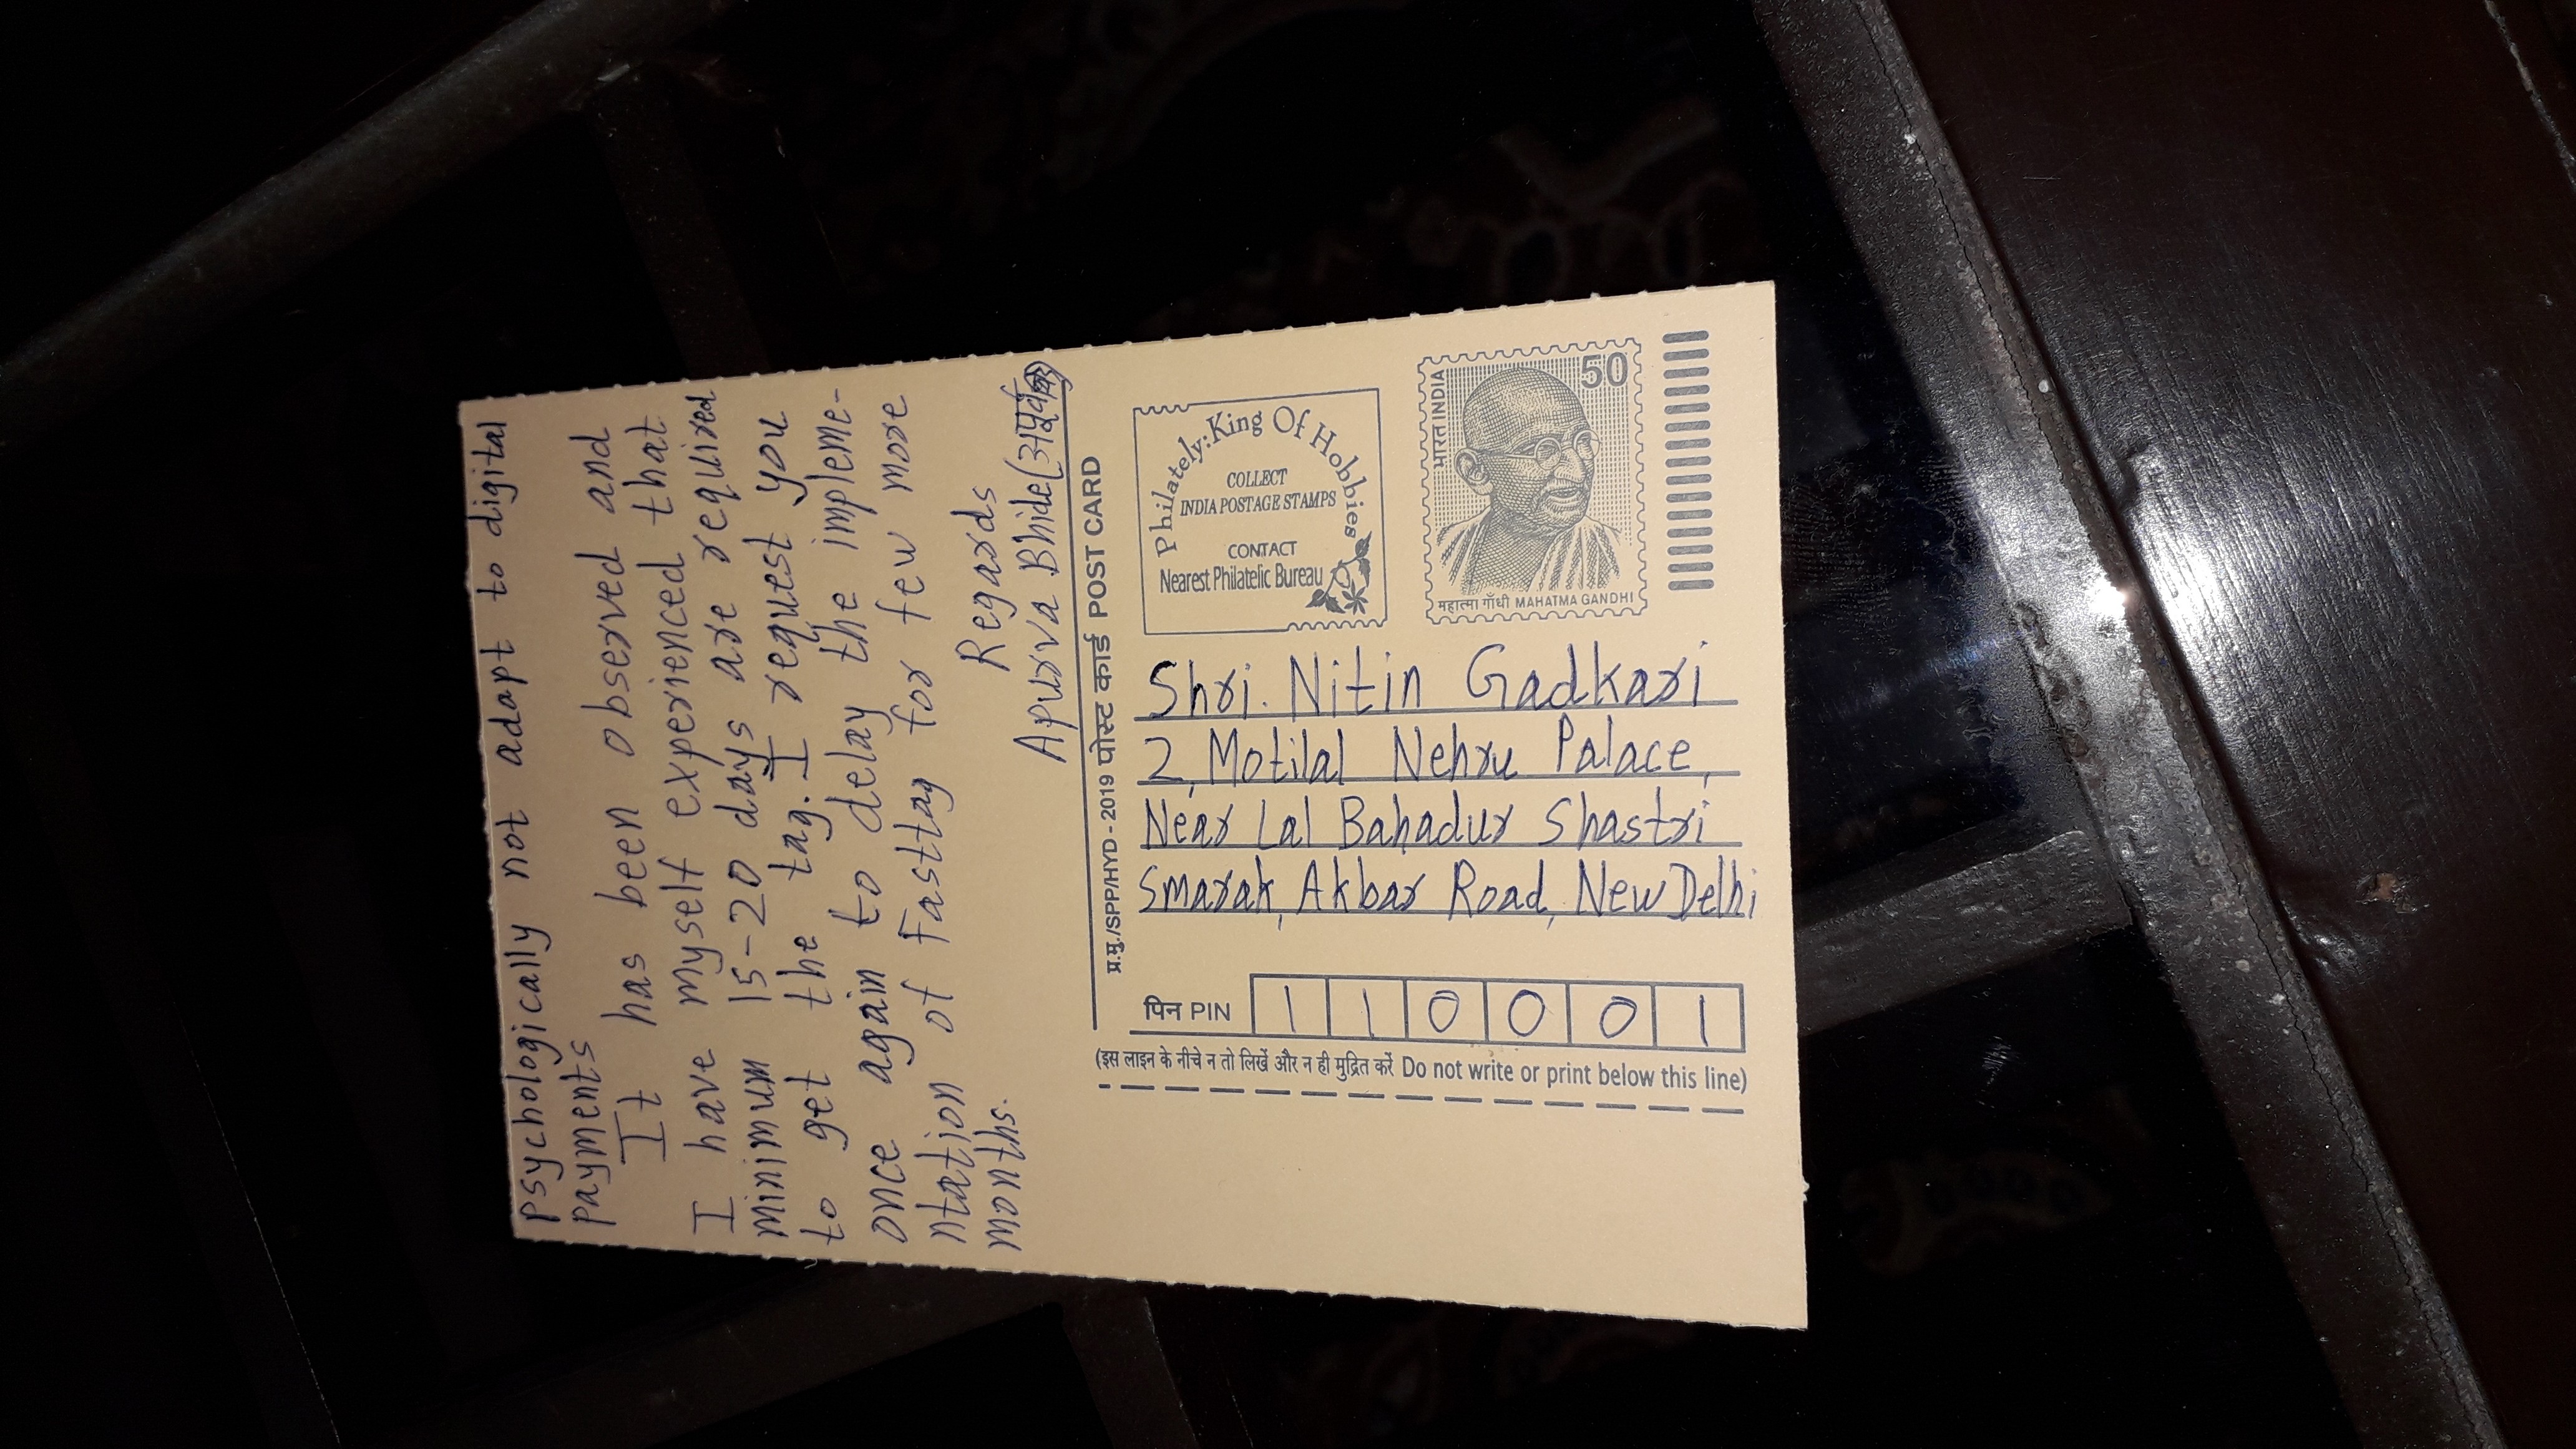 psychologically not adapt to digital
payments
It has been observed and
I have myself experienced that
minimum 15-20 days are required
to get the tag. I request you
once again to delay the impleme-
ntation of Fasttag for few more
months.
Regards
Apurva Bhide (अपूर्व भिडे)
प्र.मु./SPP/HYD - 2019 पोस्ट कार्ड POST CARD
Philately: King Of Hobbies
COLLECT
INDIA POSTAGE STAMPS
CONTACT
Nearest Philatelic Bureau
भारत INDIA
50
महात्मा गाँधी MAHATMA GANDHI
Shri. Nitin Gadkari
2, Motilal Nehru Palace,
Near Lal Bahadur Shastri
Smarak, Akbar Road, New Delhi
पिन PIN 110001
(इस लाइन के नीचे न तो लिखें और न ही मुद्रित करें Do not write or print below this line)